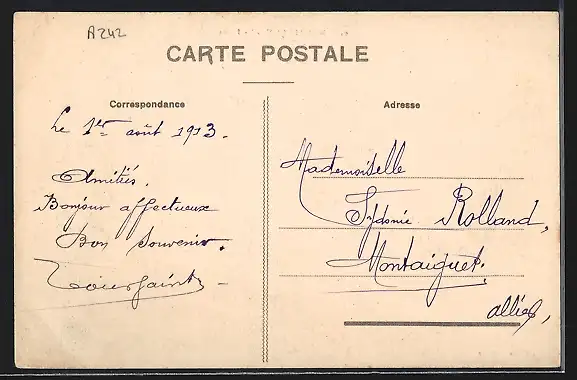 A242
CARTE POSTALE
Correspondance
Adresse
Le 1er août 1913.
Amitiés.
Bonjour affectueux
Bon souvenir.
Toussaint
Mademoiselle
Sydonie Rolland,
Montaiguet.
Allier,